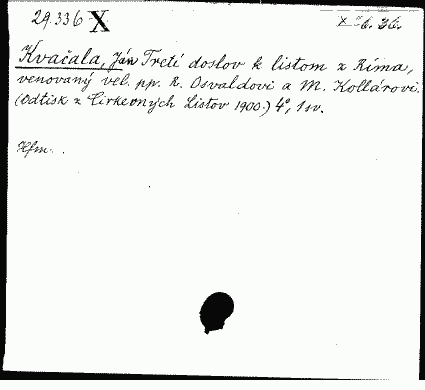 29.336 X
Kvačala, Ján Tretí doslov k listom z Ríma,
venovaný vel. pp. R. Osvaldovi a M. Kollárovi.
(Odtisk z Cirkevných Listov 1900.) 4°, 1 sv.